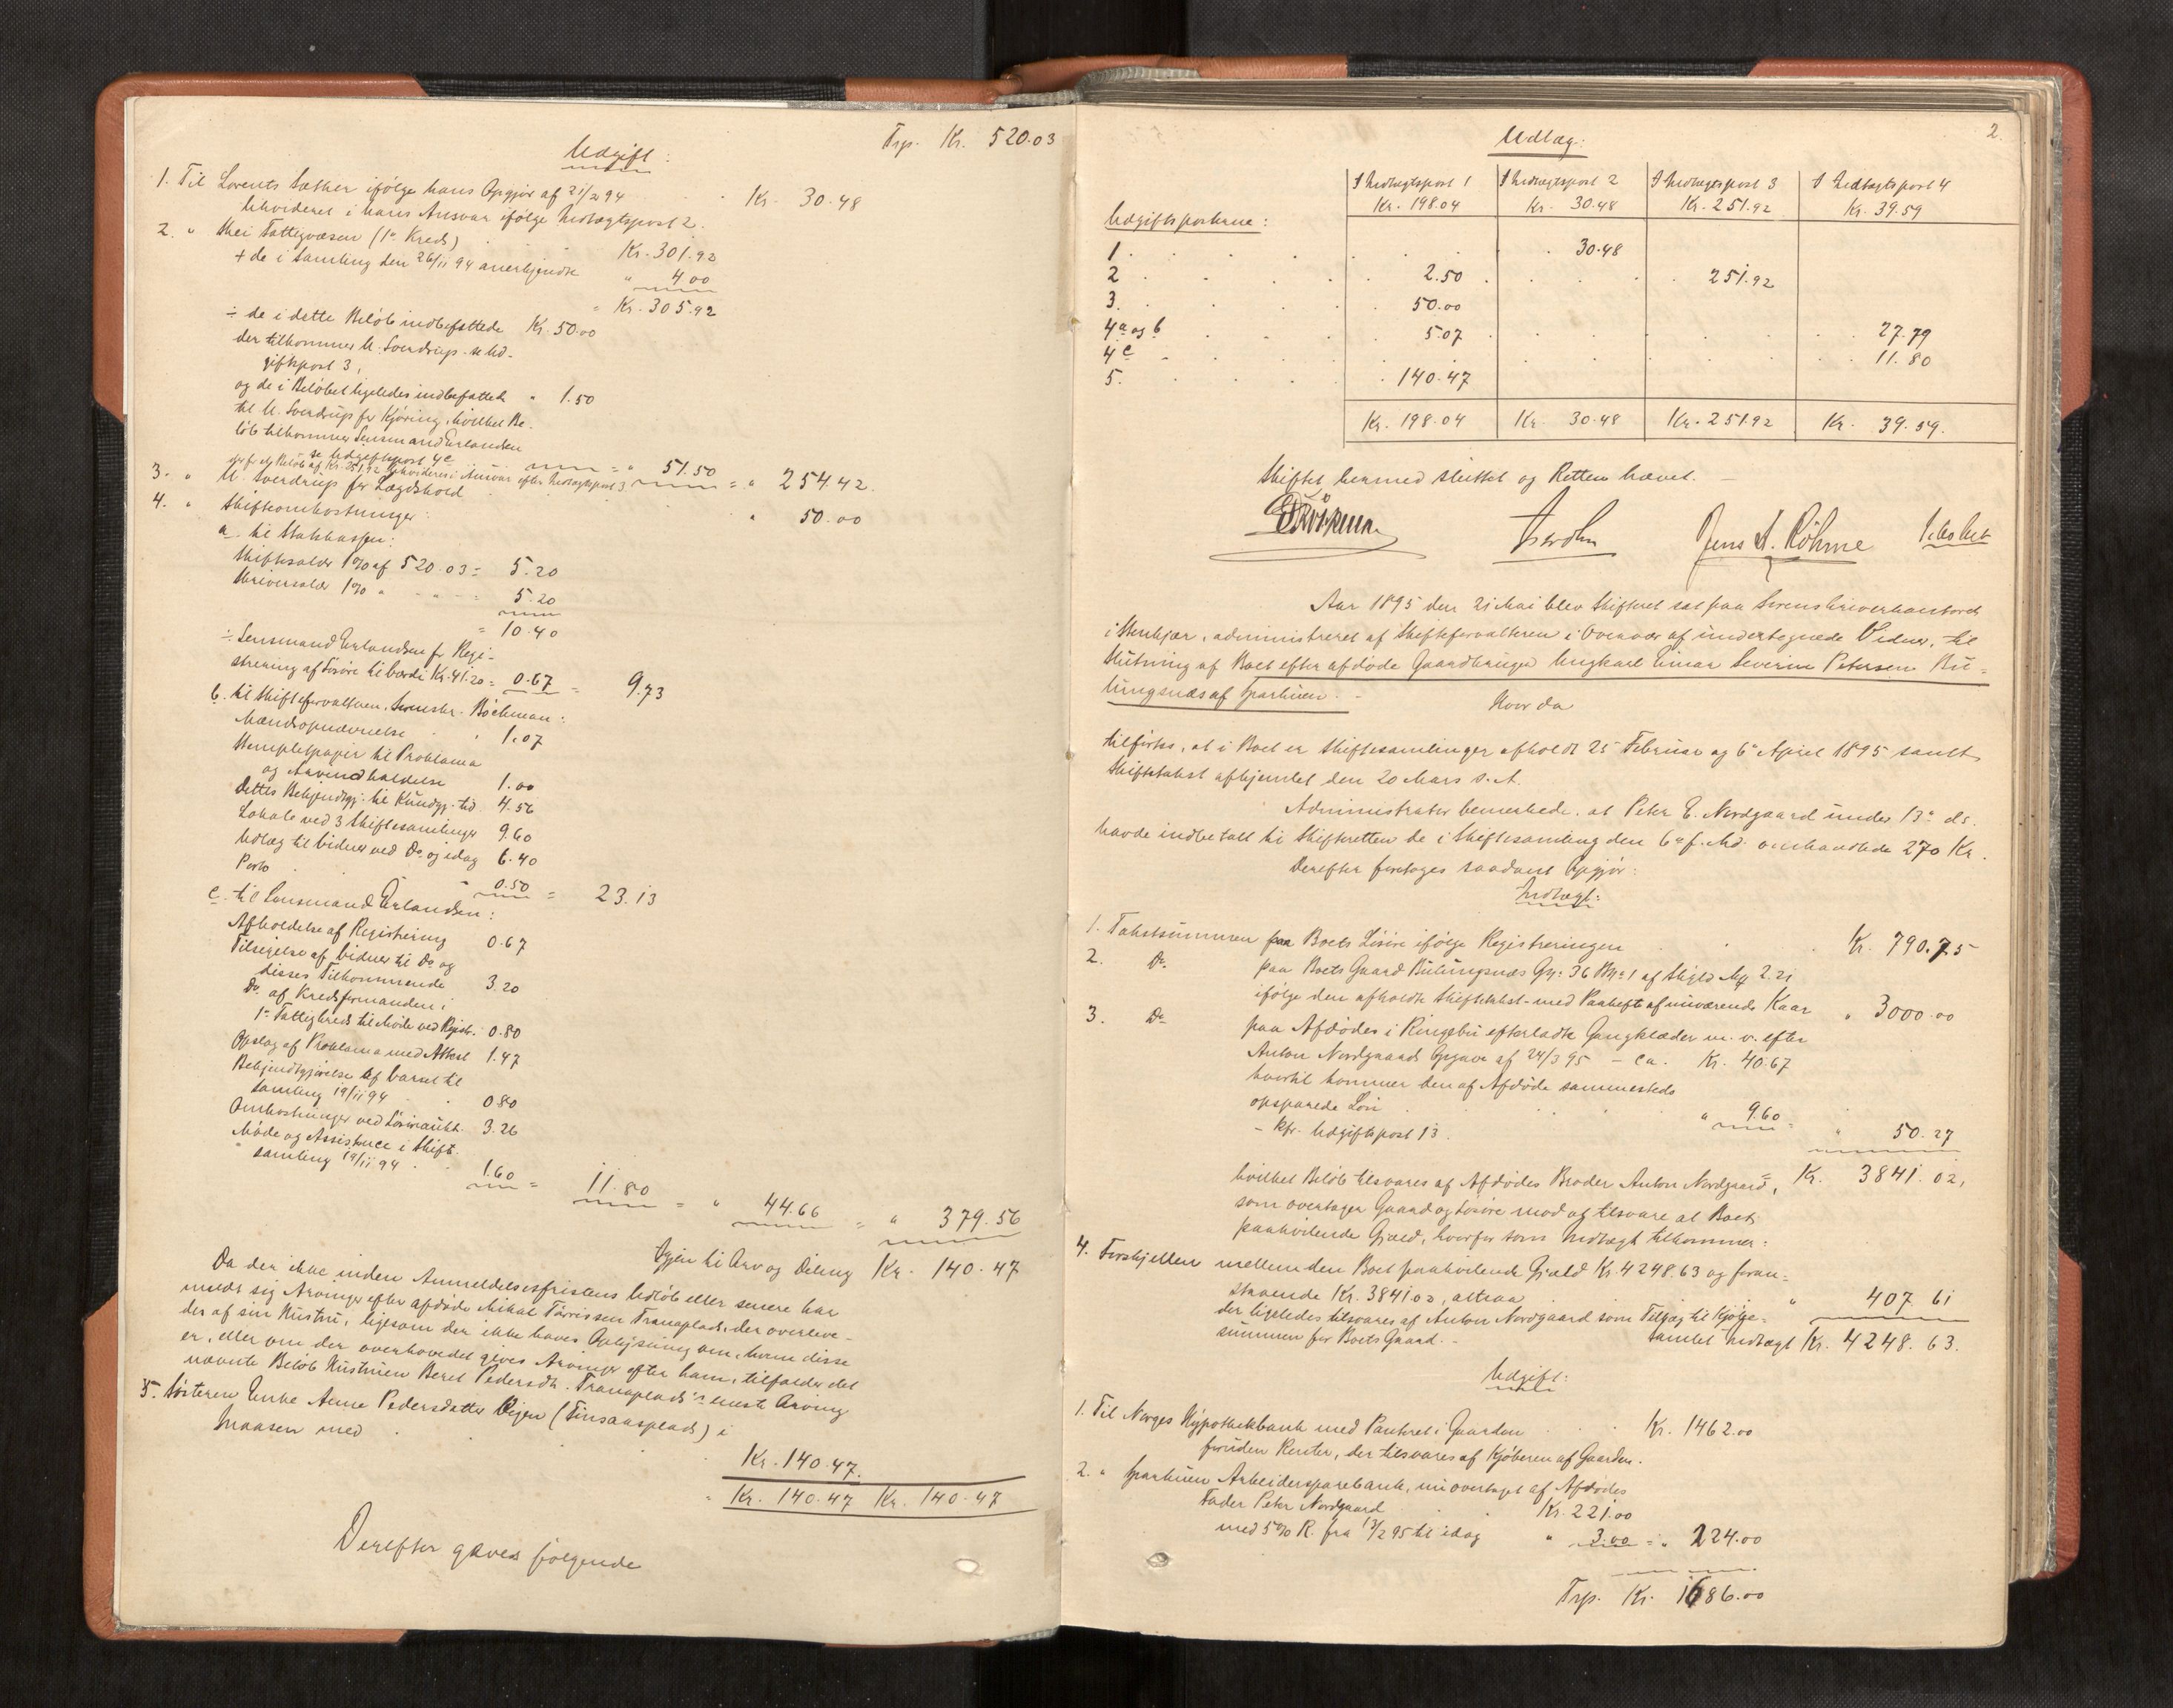 Trp. Kr. 520.03
Udgift:
1. Til Lorents Sæther ifølge hans Opgjør af 21/2 94 Kr. 30.48
likvideret i hans Ansvar ifølge Indtægtspost 2.
2. " Fattigvæsen (1e Kreds) Kr. 301.92
+ de i Samling den 26/11 94 anerkjendte " 4.00
= Kr. 305.92
÷ de i dette Beløb indbefattede Kr. 50.00
der tilkommer U. Sverdrup. se Ud-
giftspost 3,
og de i Beløbet ligeledes indbefattede " 1.50
til U. Sverdrup for Kjøring, hvilket Be-
løb tilkommer Lensmand Erlandsen
se Udgiftspost 4c = " 51.50 = " 254.42.
hvorfor et Beløb af Kr. 251.92 likvideres i Ansvar efter Indtægtspost 3
3. " U. Sverdrup for Lægdshold " 50.00
4. " Skifteomkostninger:
a. til Statskassen:
Skiftesalær 1% af 520.03 = 5.20
Skriversalær 1% " - " - = 5.20
= 10.40
÷ Lensmand Erlandsen for Regi-
strering af Løsøre til Værdi Kr. 41.20 = 0.67 = 9.73
b. til Skifteforvalteren, Sorenskr. Bøckman:
Mændsopnævnelse " 1.07
Stempletpapir til Proklama
og Arveindkaldelse 1.00
Dettes Bekjendtgj. til Kundgj. tid. 4.56
Lokale ved 3 Skiftesamlinger 9.60
Udlæg til Vidner ved Do og idag 6.40
Porto 0.50 = 23.13
c. til Lensmand Erlandsen:
Afholdelse af Registrering 0.67
Tilsigelse af Vidner til Do og
disses Tilkommende 3.20
Do af Kredsformanden i
1e Fattigkreds til Møde ved Regist. 0.80
Opslag af Proklama med Attest 1.47
Bekjendtgjørelse af Varsel til
Samling 19/11 94 0.80
Omkostninger ved Løsøreaukt. 3.26
Møde og Assistance i Skift.
samling 19/11 94 1.60 = 11.80 = " 44.66 = " 379.56
Igjen til Arv og Deling Kr. 140.47
Da der ikke inden Anmeldelsesfristens Udløb eller senere har
meldt sig Arvinger efter afdøde Mikal Tørrissen Tranaplads, der overleve-
des af sin Hustru, ligesom der ikke haves Oplysning om, hvem disse
er, eller om der overhovedet gives Arvinger efter ham, tilfalder det
nævnte Beløb Hustruen Beret Pedersdr. Tranaplads's eneste Arving
5. Søsteren Enke Anne Pedersdatter (Finsaasplads) i
Snaasen med Kr. 140.47.
Kr. 140.47 Kr. 140.47
Derefter gaves følgende
2.
Udlæg:
I Indtægtspost 1 I Indtægtspost 2 I Indtægtspost 3 I Indtægtspost 4
Udgiftsposterne: Kr. 198.04 Kr. 30.48 Kr. 251.92 Kr. 39.59
1 30.48
2 2.50 251.92
3. 50.00
4a og b 5.07 27.79
4c 11.80
5. 140.47
Kr. 198.04 Kr. 30.48 Kr. 251.92 Kr. 39.59.
Skiftet hermed sluttet og Retten hævet. –
Jens A. Röhme
Aar 1895 den 21 Mai blev Skifteret sat paa Sorenskriverkontoret
i Stenkjær, administreret af Skifteforvalteren i Overvær af undertegnede Vidner, til
Slutning af Boet efter afdøde Gaardbruger Ungkarl Einar Severin Petersen
af Sparbuen. –
Hvor da
tilførtes, at i Boet er Skiftesamlinger afholdt 25 Februar og 6te April 1895 samt
Skiftetakst afhjemlet den 20 Mars s. A.
Administrator bemærkede, at Peter E. Nordgaard under 13de ds.
havde indbetalt til Skifteretten de i Skiftesamling den 6te f. Md. omhandlede 270 Kr.
Derefter foretoges saadant Opgjør:
Indtægt:
1. Takstsummen paa Boets Løsøre ifølge Registreringen Kr. 790.75
2. Do paa Boets Gaard Gn: 36 Bn: 1 af Skyld Mk 2.21
ifølge den afholdte Skiftetakst med Paaheft af nuværende Kaar " 3000.00
3. Do paa Afdødes i Ringebu efterladte Gangklæder m. v. efter
Anton Nordgaards Opgave af 24/3 95 – ca. Kr. 40.67
hvortil kommer den af Afdøde sammesteds
opsparede Løn " 9.60 = " 50.27
– kfr. Udgiftspost 13.
hvilket Beløb tilsvares af Afdødes Broder Anton Nordgaard, Kr. 3841.02,
som overtager Gaard og Løsøre mod at tilsvare al Boets
paahvilende Gjæld, hvorfor som Indtægt tilkommer:
4. Forskjellen mellem den Boet paahvilende Gjæld Kr. 4248.63 og foran-
staaende Kr. 3841.02, altsaa " 407.61
der ligeledes tilsvares af Anton Nordgaard som Tillæg til Kjøbe-
summen for Boets Gaard. – Samlet Indtægt Kr. 4248.63.
Udgift:
1. Til Norges Hypothekbank med Panteret i Gaarden Kr. 1462.00
foruden Renter, der tilsvares af Kjøberen af Gaarden.
2. " Sparbuen Arbeidersparebank, nu overtaget af Afdødes
Fader Peter Nordgaard Kr. 221.00
med 5% R. fra 13/2 95 til idag " 3.00 = " 224.00
Trp. Kr. 1686.00